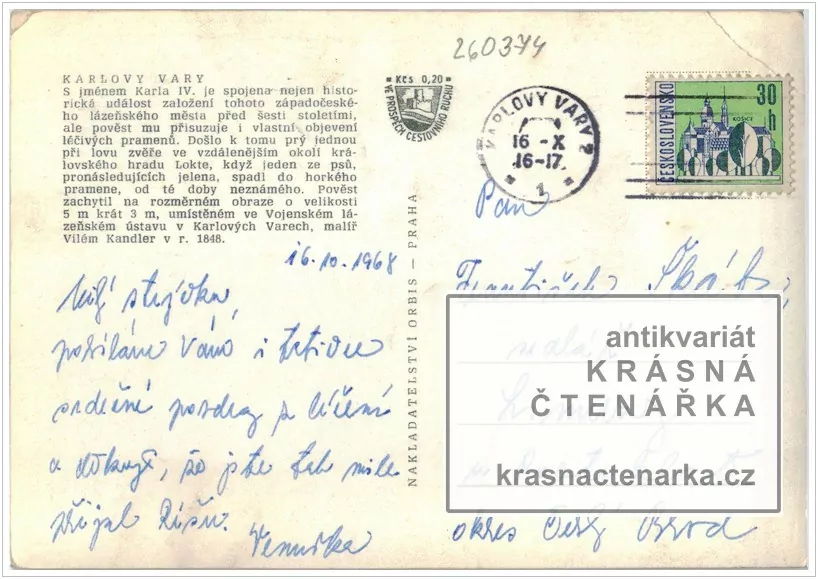 260374
KARLOVY VARY
S jménem Karla IV. je spojena nejen histo-
rická událost založení tohoto západočeské-
ho lázeňského města před šesti stoletími,
ale pověst mu přisuzuje i vlastní objevení
léčivých pramenů. Došlo k tomu prý jednou
při lovu zvěře ve vzdálenějším okolí krá-
lovského hradu Lokte, když jeden ze psů,
pronásledujících jelena, spadl do horkého
pramene, od té doby neznámého. Pověst
zachytil na rozměrném obraze o velikosti
5 m krát 3 m, umístěném ve Vojenském lá-
zeňském ústavu v Karlových Varech, malíř
Vilém Kandler v r. 1848.
Kčs 0,20
VE PROSPĚCH CESTOVNÍHO RUCHU
KARLOVY VARY 2
16 -X
16-17
1
ČESKOSLOVENSKO
30 h
KOŠICE
NAKLADATELSTVÍ ORBIS — PRAHA
16.10.1968
Milý strýčku,
posíláme Vám i tetince
srdečné pozdravy z léčení
a děkuji, že jste tak mile
přijal
Pan
František
okres Český Brod
antikvariát
KRÁSNÁ
ČTENÁŘKA
krasnactenarka.cz